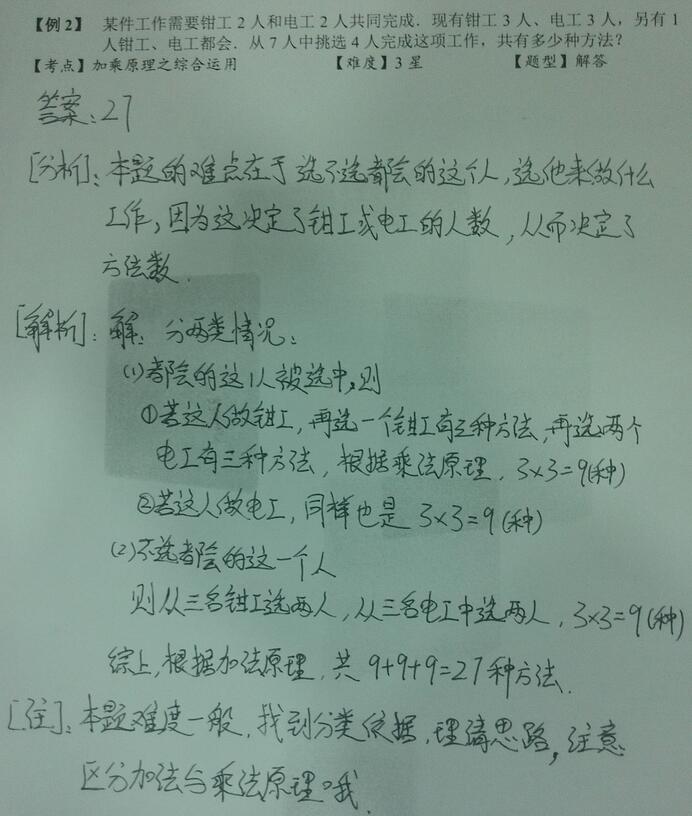 【例2】 某件工作需要钳工2人和电工2人共同完成.现有钳工3人、电工3人,另有1
人钳工、电工都会.从7人中挑选4人完成这项工作,共有多少种方法?
【考点】加乘原理之综合运用 【难度】3星 【题型】解答
答案:27
[分析]:本题的难点在于选不选都会的这个人,选他来做什么
工作,因为这决定了钳工或电工的人数,从而决定了
方法数.
[解析]:解:分两类情况:
(1)都会的这1人被选中,则
①若这人做钳工,再选一个钳工有三种方法,再选两个
电工有三种方法,根据乘法原理,3×3=9(种)
②若这人做电工,同样也是3×3=9(种)
(2)不选都会的这一个人
则从三名钳工选两人,从三名电工中选两人,3×3=9(种)
综上,根据加法原理,共9+9+9=27种方法.
[注]:本题难度一般,找到分类依据,理清思路,注意
区分加法与乘法原理哦.